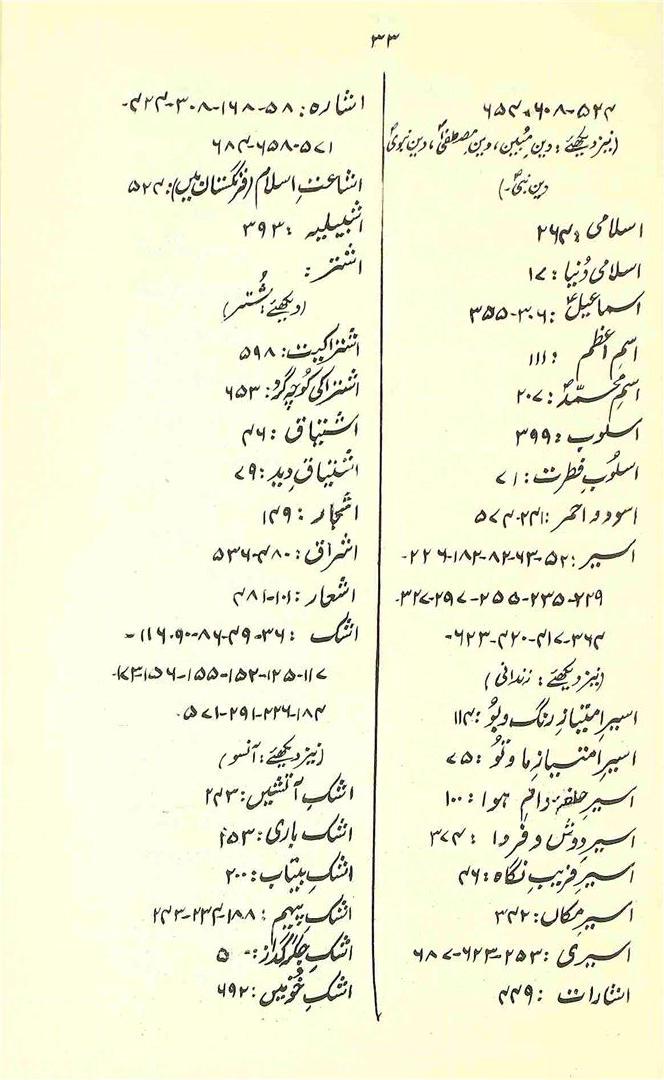 ۳۳
۵۲۴-۶۰۸-۶۵۴
(نیز دیکھئے: دینِ مبین، دینِ مصطفیٰؐ، دینِ نبویؐ
دینِ نبیؐ-)
اسلامی: ۲۶۴
اسلامی دُنیا: ۱۷
اسماعیلؑ: ۳۰۶-۳۵۵
اسمِ اعظم: ۱۱۱
اسمِ محمّدؐ: ۲۰۷
اسلوب: ۳۹۹
اسلوبِ فطرت: ۷۱
اسود و احمر: ۲۴۱-۵۷۴
اسیر: ۵۲-۶۳-۸۲-۱۸۲-۲۲۶-
۲۲۹-۲۳۵-۲۵۵-۲۹۷-۳۲۷-
۳۶۴-۴۱۷-۴۲۰-۶۲۳-
(نیز دیکھئے: زندانی)
اسیرِ امتیازِ رنگ و بُو: ۱۱۴
اسیرِ امتیازِ ما و تُو: ۷۵
اسیرِ حلقۂ دامِ ہوا: ۱۰۰
اسیرِ دوش و فردا: ۳۷۴
اسیرِ فریبِ نگاہ: ۴۶
اسیرِ مکاں: ۳۴۲
اسیری: ۲۵۳-۶۲۳-۶۸۷
اشارات: ۴۴۹
اشارہ: ۵۸-۱۶۸-۳۰۸-۴۲۴-
۵۷۱-۶۵۸-۶۸۴
اشاعتِ اسلام (فرنگستان میں): ۵۲۴
اشبیلیہ: ۳۹۳
اشتر:
(دیکھئے: شُتر)
اشتراکیت: ۵۹۸
اشتراکی کوچہ گرد: ۶۵۳
اشتیاق: ۴۶
اشتیاقِ دید: ۷۹
اشجار: ۱۴۹
اشراق: ۴۸۰-۵۳۶
اشعار: ۱۰۱-۴۸۱
اشک: ۳۶-۴۹-۸۶-۹۰-۱۱۶-
۱۱۷-۱۲۵-۱۵۲-۱۵۵-۱۵۶-
۱۸۴-۲۲۶-۲۹۱-۵۷۱-
(نیز دیکھئے: آنسو)
اشکِ آتشیں: ۲۴۳
اشک باری: ۱۵۳
اشکِ بیتاب: ۲۰۰
اشکِ پیہم: ۱۸۸-۲۳۴-۲۴۳
اشکِ جگر گداز: ۵۰
اشکِ خُونیں: ۶۹۲